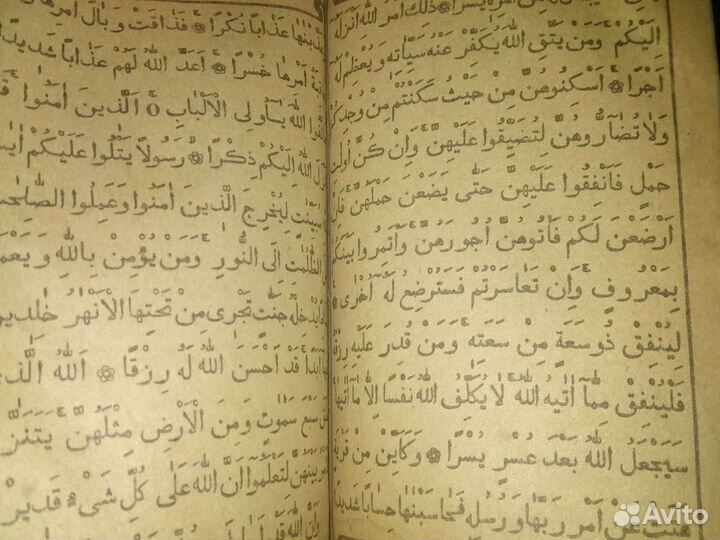 مِنْ اَمْرِهٖ يُسْرًا ۞ ذٰلِكَ اَمْرُ اللّٰهِ اَنْزَلَهُٓ
اِلَيْكُمْ ۚ وَمَنْ يَتَّقِ اللّٰهَ يُكَفِّرْ عَنْهُ سَيِّاٰتِهٖ وَيُعْظِمْ لَهُٓ
اَجْرًا ۞ اَسْكِنُوهُنَّ مِنْ حَيْثُ سَكَنْتُمْ مِنْ وُجْدِكُمْ
وَلَا تُضَٓارُّوهُنَّ لِتُضَيِّقُوا عَلَيْهِنَّ ۚ وَاِنْ كُنَّ اُولَاتِ
حَمْلٍ فَاَنْفِقُوا عَلَيْهِنَّ حَتّٰى يَضَعْنَ حَمْلَهُنَّ ۚ فَاِنْ
اَرْضَعْنَ لَكُمْ فَاٰتُوهُنَّ اُجُورَهُنَّ ۚ وَاْتَمِرُوا بَيْنَكُمْ
بِمَعْرُوفٍ ۚ وَاِنْ تَعَاسَرْتُمْ فَسَتُرْضِعُ لَهُٓ اُخْرٰى ۞
لِيُنْفِقْ ذُوسَعَةٍ مِنْ سَعَتِهٖ ۚ وَمَنْ قُدِرَ عَلَيْهِ رِزْقُهُ
فَلْيُنْفِقْ مِمَّٓا اٰتٰيهُ اللّٰهُ ۚ لَا يُكَلِّفُ اللّٰهُ نَفْسًا اِلَّا مَٓا اٰتٰيهَا
سَيَجْعَلُ اللّٰهُ بَعْدَ عُسْرٍ يُسْرًا ۞ وَكَاَيِّنْ مِنْ قَرْيَةٍ
عَتَتْ عَنْ اَمْرِ رَبِّهَا وَرُسُلِهٖ فَحَاسَبْنَاهَا حِسَابًا شَدِيدًا
عَذَّبْنَاهَا عَذَابًا نُكْرًا ۞ فَذَاقَتْ وَبَالَ اَمْرِهَا
اَمْرِهَا خُسْرًا ۞ اَعَدَّ اللّٰهُ لَهُمْ عَذَابًا شَدِيدًا
اللّٰهَ يَٓا اُولِى الْاَلْبَابِ ۚ الَّذِينَ اٰمَنُوا ۚ قَدْ
اللّٰهُ اِلَيْكُمْ ذِكْرًا ۞ رَسُولًا يَتْلُوا عَلَيْكُمْ اٰيَاتِ
مُبَيِّنَاتٍ لِيُخْرِجَ الَّذِينَ اٰمَنُوا وَعَمِلُوا الصَّالِحَاتِ
الظُّلُمَاتِ اِلَى النُّورِ ۚ وَمَنْ يُؤْمِنْ بِاللّٰهِ وَيَعْمَلْ
يُدْخِلْهُ جَنَّاتٍ تَجْرِى مِنْ تَحْتِهَا الْاَنْهَارُ خَالِدِينَ
اَبَدًا ۚ قَدْ اَحْسَنَ اللّٰهُ لَهُ رِزْقًا ۞ اَللّٰهُ الَّذِى
سَبْعَ سَمٰوَاتٍ وَمِنَ الْاَرْضِ مِثْلَهُنَّ ۚ يَتَنَزَّلُ
بَيْنَهُنَّ لِتَعْلَمُٓوا اَنَّ اللّٰهَ عَلٰى كُلِّ شَىْءٍ قَدِيرٌ
وَاَنَّ اللّٰهَ قَدْ
Avito